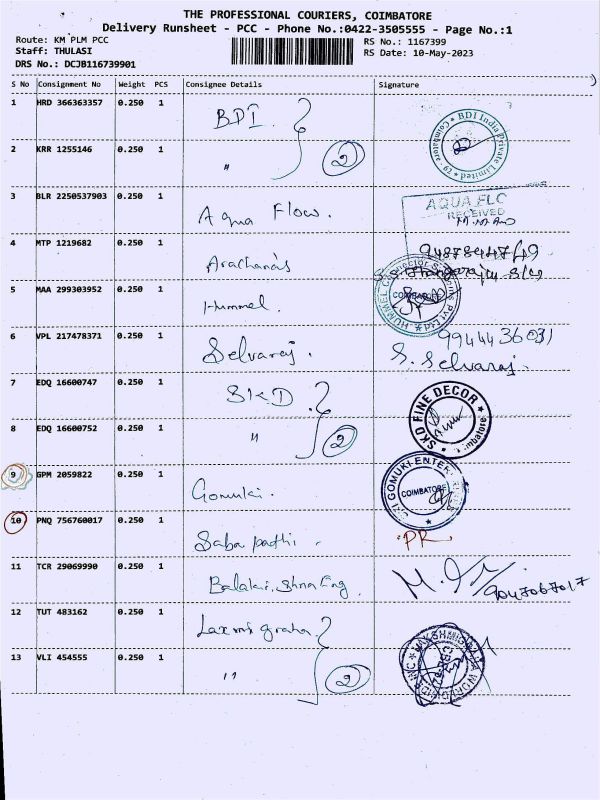 THE PROFESSIONAL COURIERS, COIMBATORE
Delivery Runsheet - PCC - Phone No.:0422-3505555 - Page No.:1
Route: KM PLM PCC
RS No.: 1167399
Staff: THULASI
RS Date: 10-May-2023
DRS No.: DCJB116739901
S No Consignment No Weight PCS Consignee Details Signature
1 HRD 366363357 0.250 1 BDI. BDI India Private Limited Coimbatore
2 KRR 1255146 0.250 1 " 2
3 BLR 2250537903 0.250 1 Aqua Flow. AQUA FLO
RECEIVED
4 MTP 1219682 0.250 1 Arachanas
5 MAA 299303952 0.250 1 Hummel. COIMBATORE
6 VPL 217478371 0.250 1 Selvaraj. S. Selvaraj.
7 EDQ 16600747 0.250 1 SKD SKD FINE DECOR
8 EDQ 16600752 0.250 1 " 2
9 GPM 2059822 0.250 1 Gomuki. COIMBATORE
10 PNQ 756760017 0.250 1 Saba pathi. PR
11 TCR 29069990 0.250 1 9047067017
12 TUT 483162 0.250 1 Laxmi graha
13 VLI 454555 0.250 1 " 2